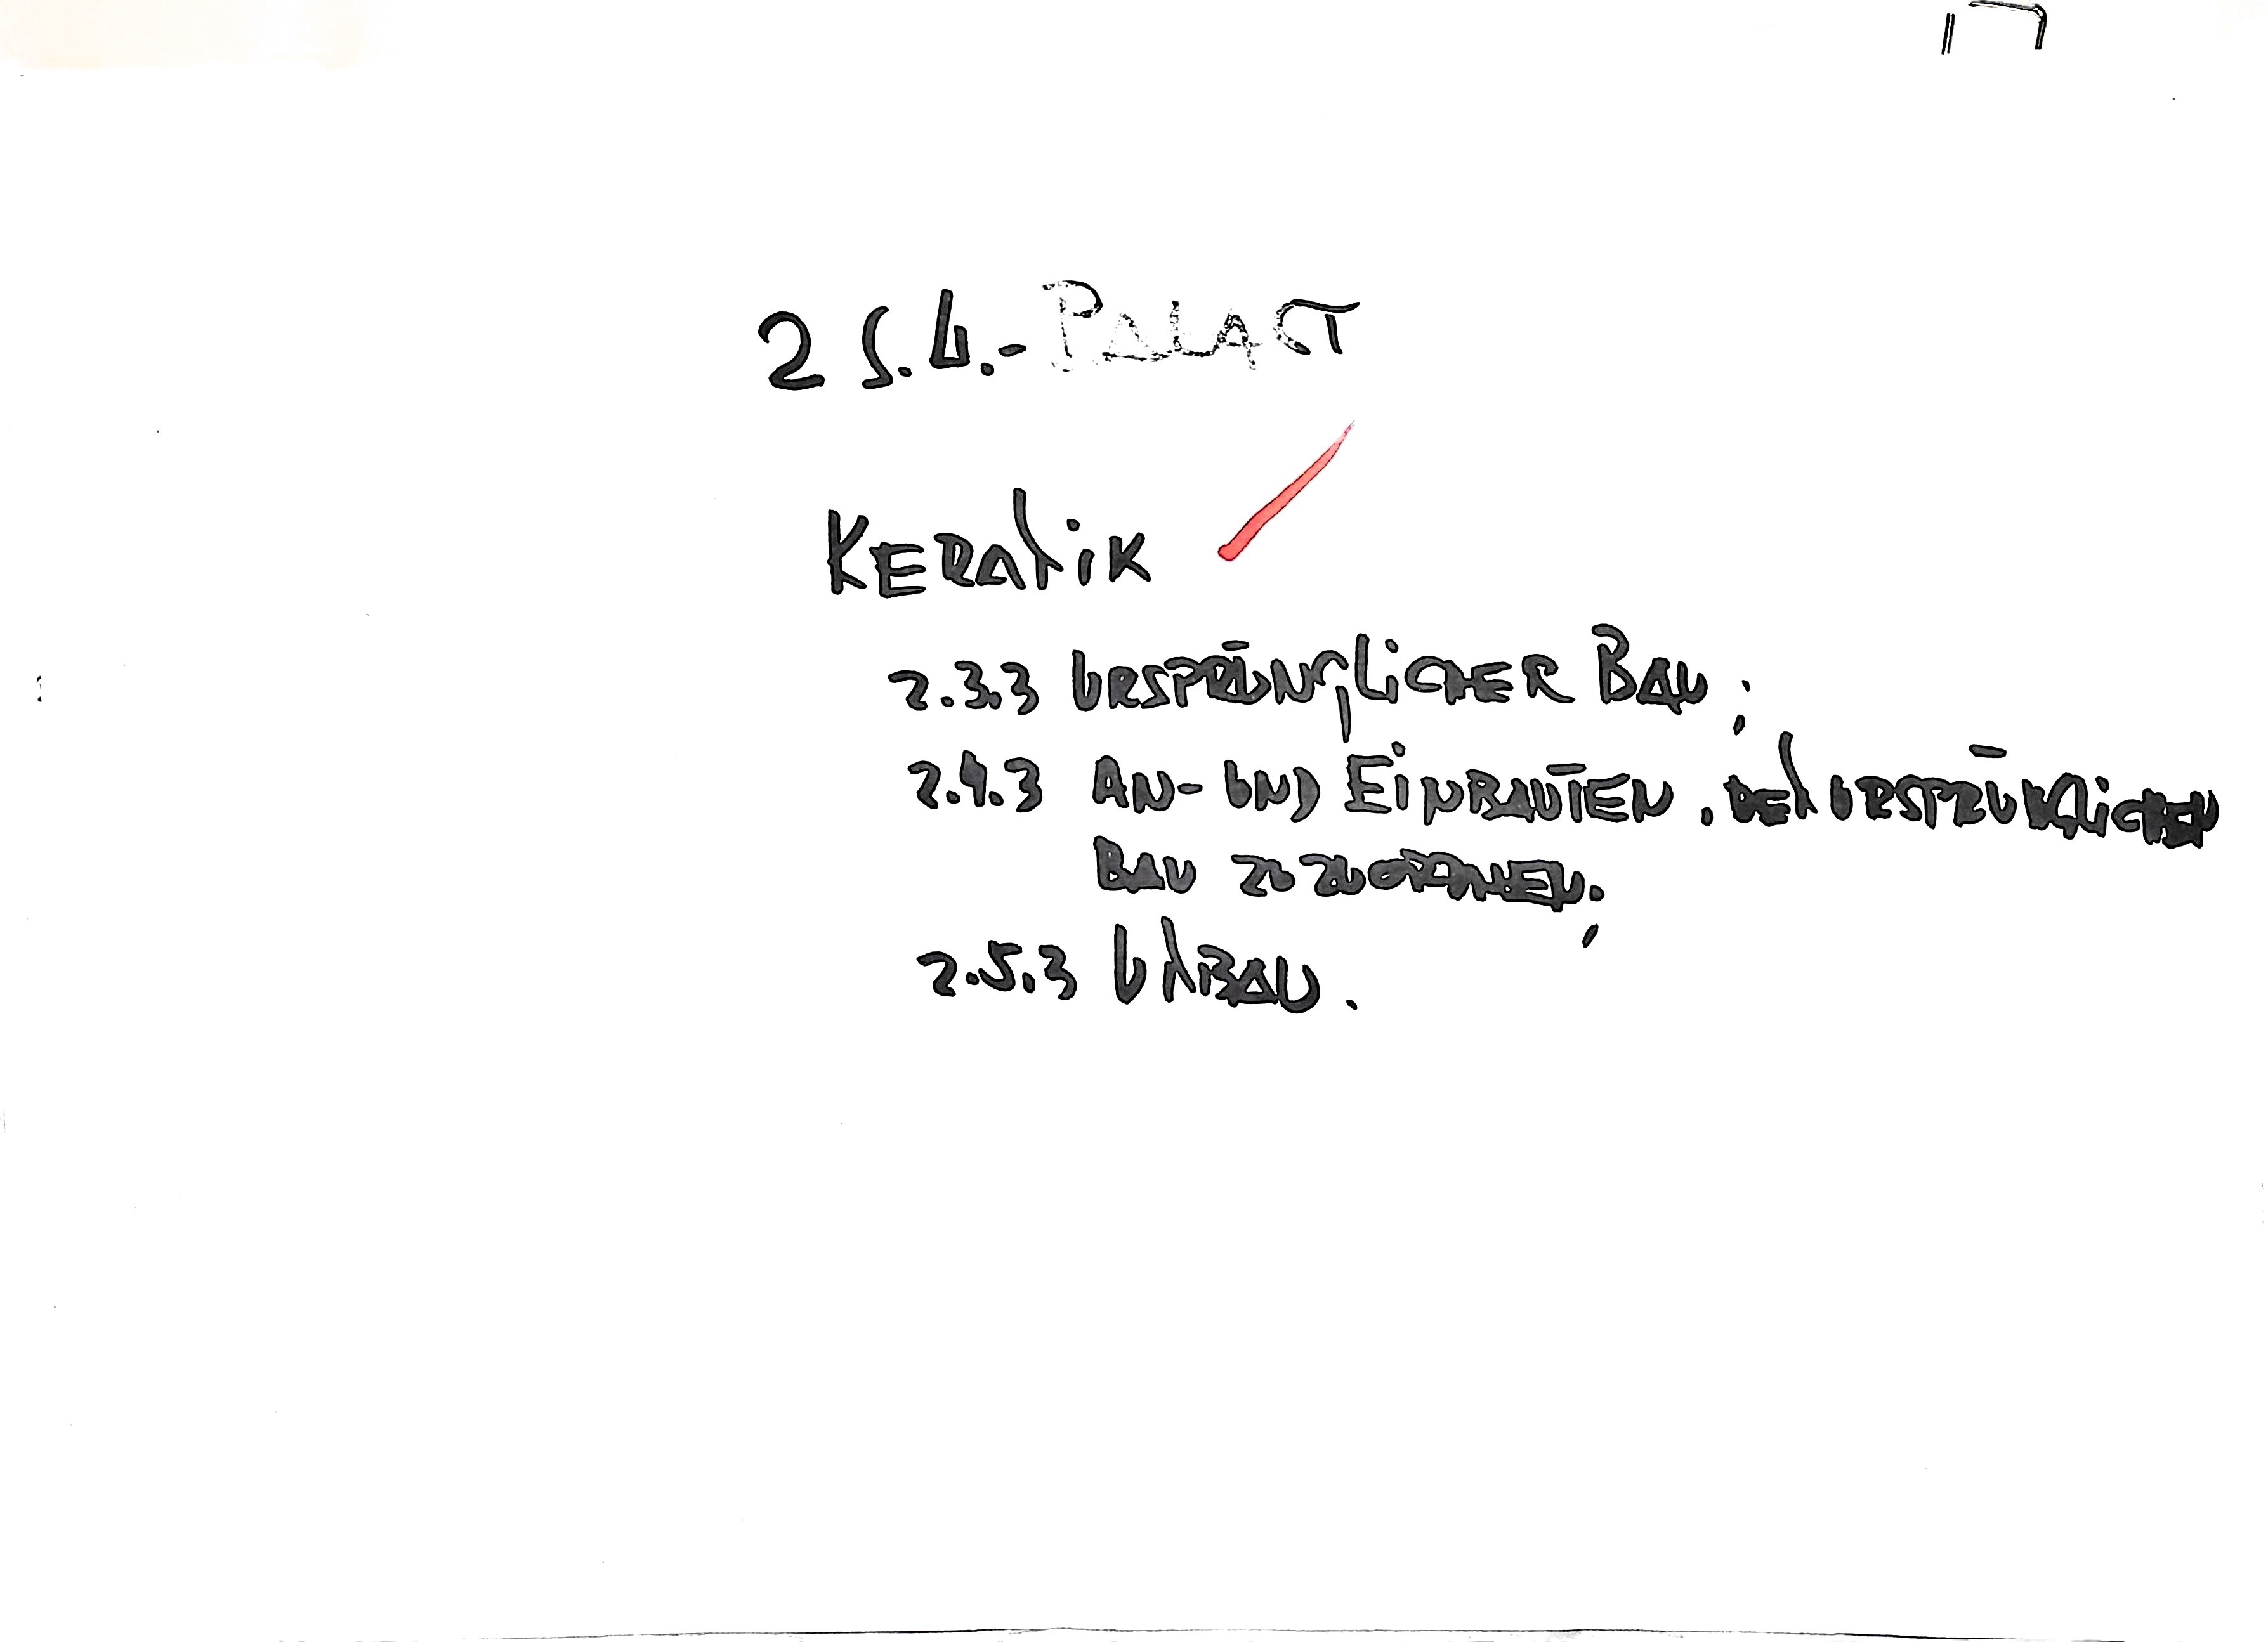 2 S.U.-PALAST
KERAMIK
2.3.3 URSPRŪNGLICHER BAU;
2.4.3 AN- UND EINBAUTEN, DEM URSPRŪNGLICHEN
BAU ZUZUORDNEN;
2.5.3 UMBAU.